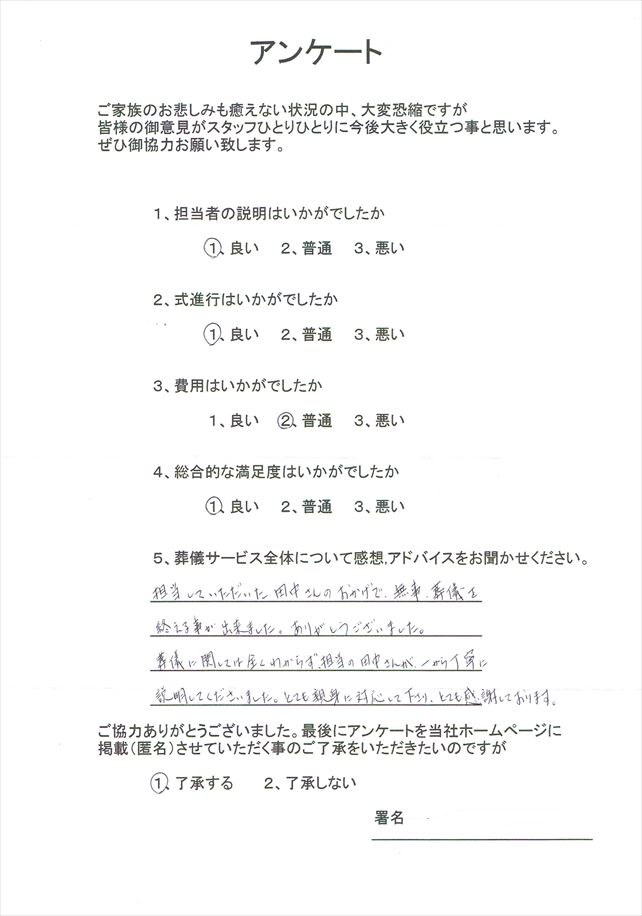 アンケート
ご家族のお悲しみも癒えない状況の中、大変恐縮ですが
皆様の御意見がスタッフひとりひとりに今後大きく役立つ事と思います。
ぜひ御協力お願い致します。
1、担当者の説明はいかがでしたか
1、良い 2、普通 3、悪い
2、式進行はいかがでしたか
1、良い 2、普通 3、悪い
3、費用はいかがでしたか
1、良い 2、普通 3、悪い
4、総合的な満足度はいかがでしたか
1、良い 2、普通 3、悪い
5、葬儀サービス全体について感想,アドバイスをお聞かせください。
担当していただいた田中さんのおかげで、無事、葬儀を
終える事が出来ました。ありがとうございました。
葬儀に関しては全くわからず、担当の田中さんが、一から丁寧に
説明してくださいました。とても親身に対応して下さり、とても感謝しております。
ご協力ありがとうございました。最後にアンケートを当社ホームページに
掲載(匿名)させていただく事のご了承をいただきたいのですが
1、了承する 2、了承しない
署名